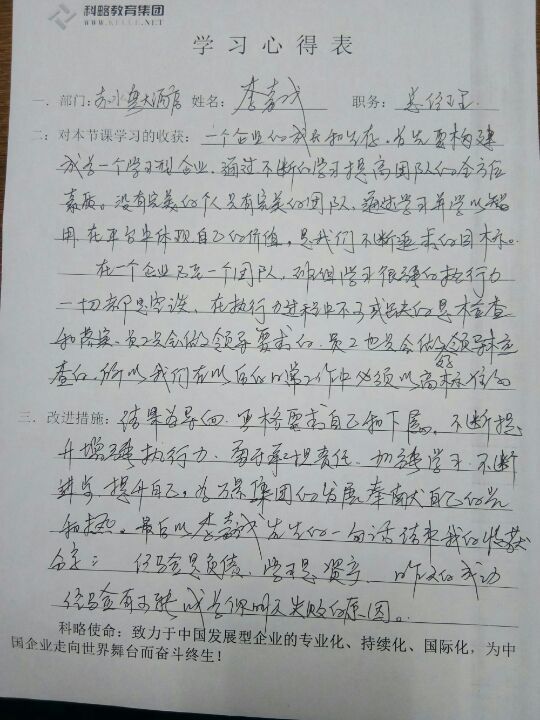 科略教育集团
WWW.KELUE.NET
学习心得表
一．部门：水 大酒店 姓名：李嘉 职务：总经理．
二：对本节课学习的收获：一个企业的成长和生存，首先要构建
成为一个学习型企业，通过不断的学习提高团队的全方位
素质。没有完美的个人只有完美的团队，通过学习并学以
用 在平台中体现自己的价值，是我们不断追求的目标。
在一个企业 一个团队，学习 很强的执行力
一切都是空谈，在执行力过程中不可或缺的是检查
和落实，员工只会做领导要求的，员工也只会做领导检
查的，所以我们在以后的工作中必须以高标准
三．改进措施：结果为导向 严格要求自己和下属，不断提
升增强执行力，勇于承担责任，加强学习，不断
提升自己，为 集团的发展奉献自己的光
和热。最后以李嘉诚先生的一句话结束我的收获
分享：经验是负债，学习是资产，昨天的成功
经验有可能成为你明天失败的原因。
科略使命：致力于中国发展型企业的专业化、持续化、国际化，为中
国企业走向世界舞台而奋斗终生！